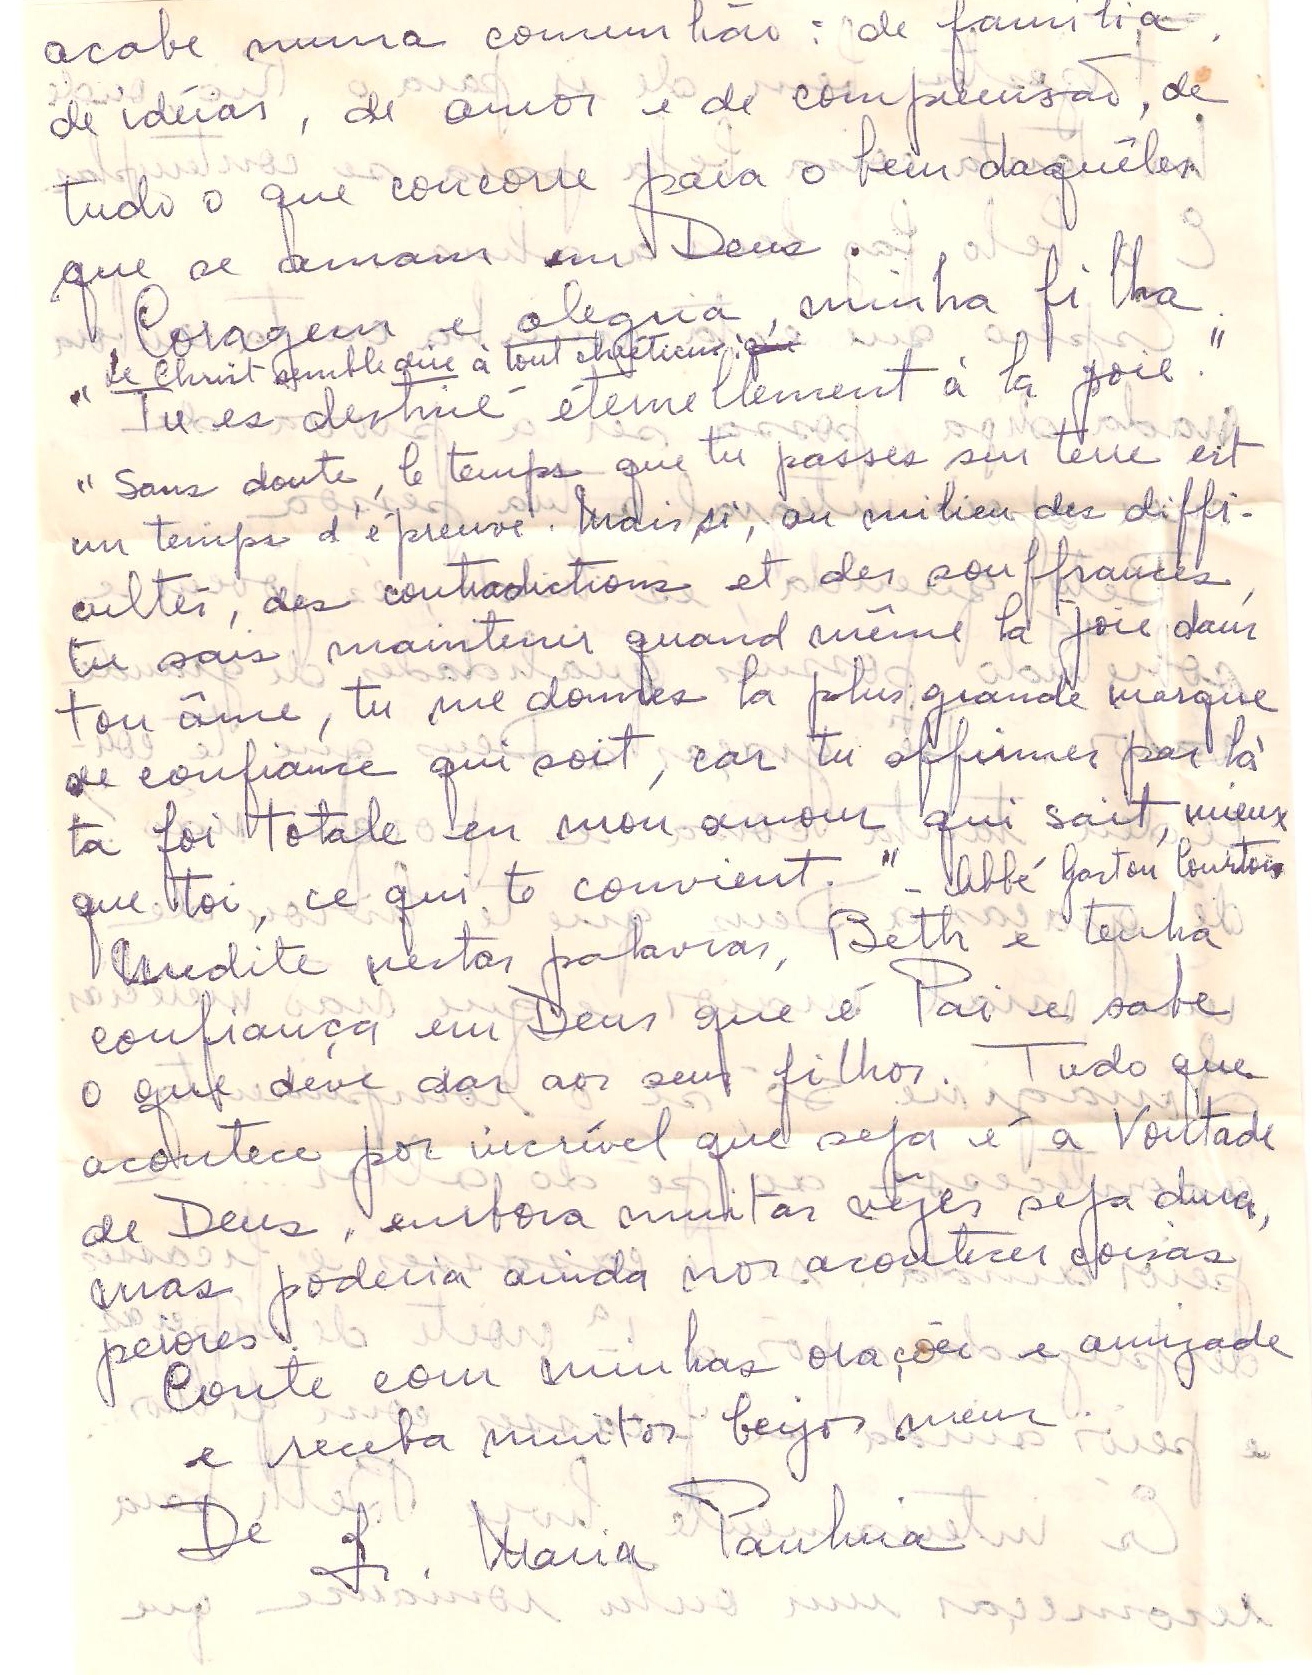 acabe numa comunhão: de família,
de idéias, de amor e de compreensão, de
tudo o que concorre para o bem daquêles
que se amam em Deus.
Coragem e alegria, minha filha.
Le Christ semble dire à tout chrétien: que
"Tu es destiné éternellement à la joie."
"Sans doute, le temps que tu passes sur terre est
un temps d'épreuve. Mais si, au milieu des diffi-
cultés, des contradictions et des souffrances,
tu sais maintenir quand même la joie dans
ton âme, tu me donnes la plus grande marque
de confiance qui soit, car tu affirmes par là
ta foi totale en mon amour qui sait, mieux
que toi, ce qui te convient." - Abbé Gaston Courtois
Medite nestas palavras, Beth e tenha
confiança em Deus que é Pai e sabe
o que deve dar aos seus filhos. Tudo que
acontece por incrível que seja é a Vontade
de Deus, embora muitas vêzes seja dura,
mas poderia ainda nos acontecer coisas
peiores.
Conte com minhas orações e amizade
e receba muitos beijos meus.
De Ir. Maria Paulina